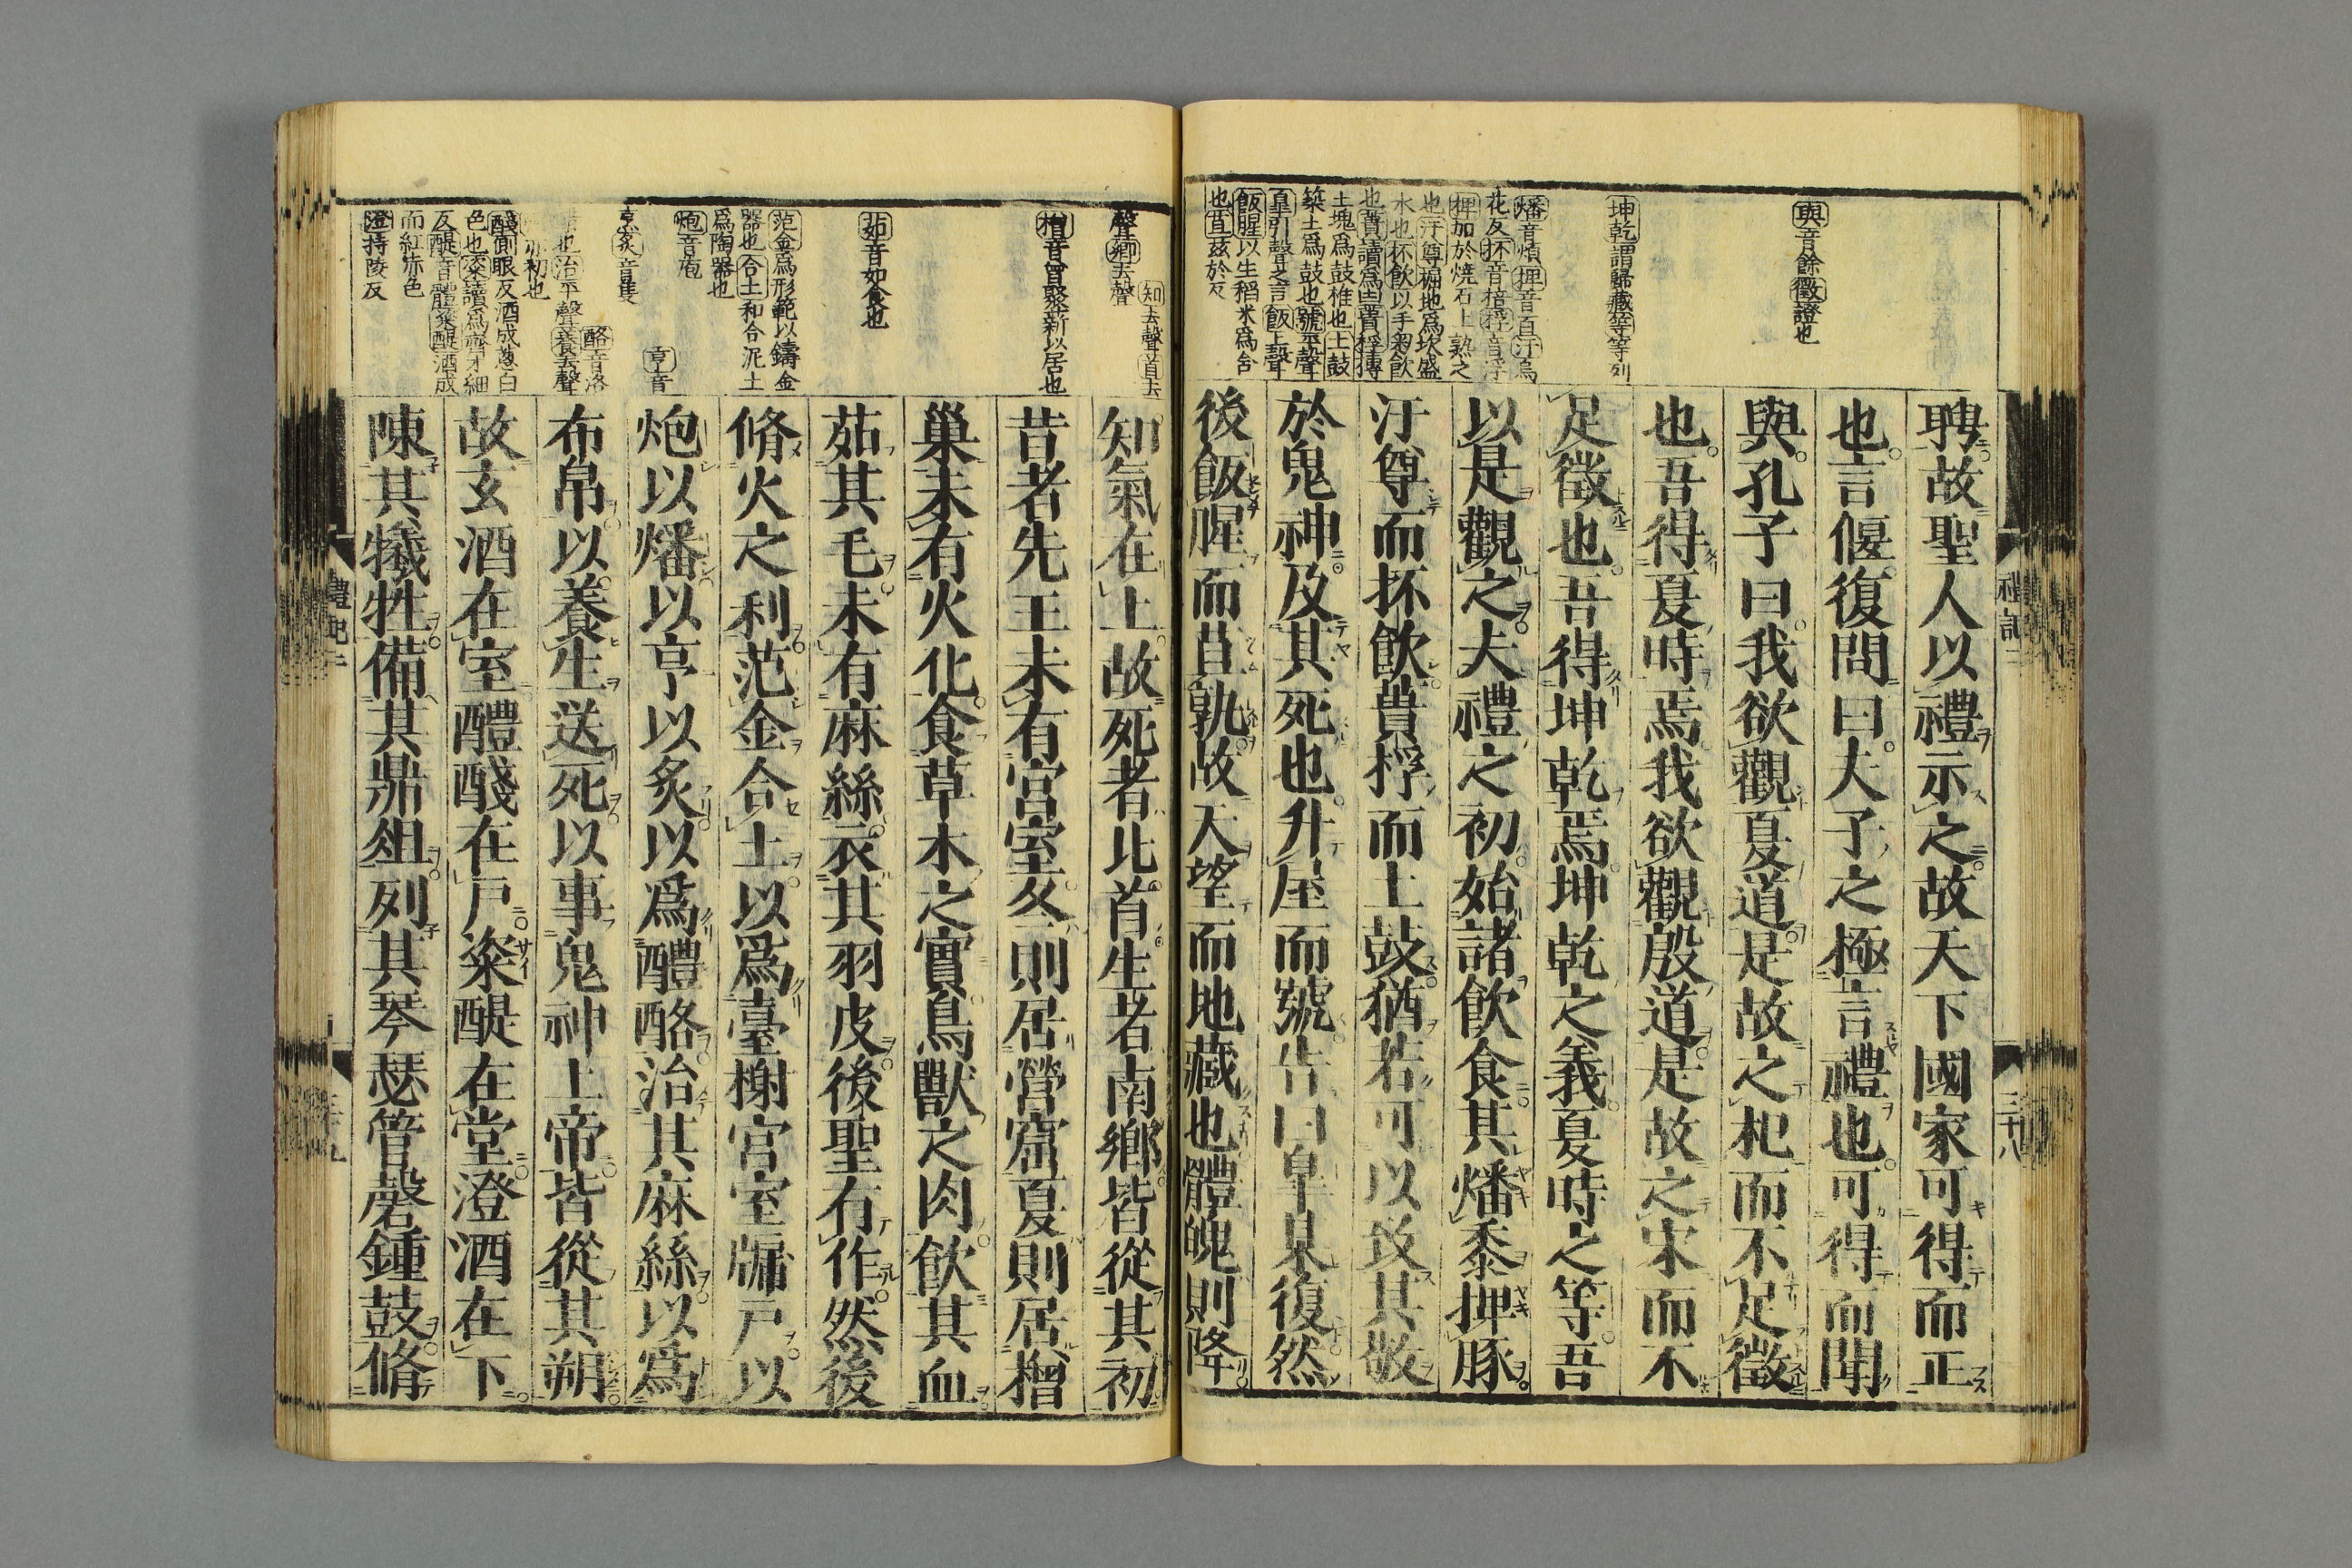 與音餘徵證也
坤乾謂歸藏等等列
燔音煩捭音百汙烏
花反抔音掊桴音浮
捭加於燒石上熟之
也汙尊掘地爲坎盛
水也抔飲以手掬飲
也蕢讀爲凷蕢桴摶
土塊爲鼓椎也土鼓
築土爲鼓也號平聲
皐引聲之言飯上聲
飯腥以生稻米爲含
也苴玆於反
聘故聖人以禮示之故天下國家可得而正
也言偃復問曰夫子之極言禮也可得而聞
與孔子曰我欲觀夏道是故之杞而不足徵
也吾得夏時焉我欲觀殷道是故之宋而不
足徵也吾得坤乾焉坤乾之義夏時之等吾
以是觀之夫禮之初始諸飲食其燔黍捭豚
汙尊而抔飲蕢桴而土鼓猶若可以致其敬
於鬼神及其死也升屋而號告曰皐某復然
後飯腥而苴孰故天望而地藏也體魄則降
禮記二
三十八
知去聲首去
聲鄉去聲
橧音曾聚薪以居也
茹音如食也
范金爲形範以鑄金
器也合土和合泥土
爲陶器也
炮音庖
亨音
烹炙音隻
酪音洛
也治平聲養去聲
初也
醆側眼反酒成蔥白
色也粢讀爲齊才細
反醍音體粢醍酒成
而紅赤色
澄持陵反
知氣在上故死者北首生者南鄉皆從其初
昔者先王未有宮室冬則居營窟夏則居橧
巢未有火化食草木之實鳥獸之肉飲其血
茹其毛未有麻絲衣其羽皮後聖有作然後
脩火之利范金合土以爲臺榭宮室牖戶以
炮以燔以亨以炙以爲醴酪治其麻絲以爲
布帛以養生送死以事鬼神上帝皆從其朔
故玄酒在室醴醆在戶粢醍在堂澄酒在下
陳其犧牲備其鼎俎列其琴瑟管磬鍾鼓脩
禮記二
三十九